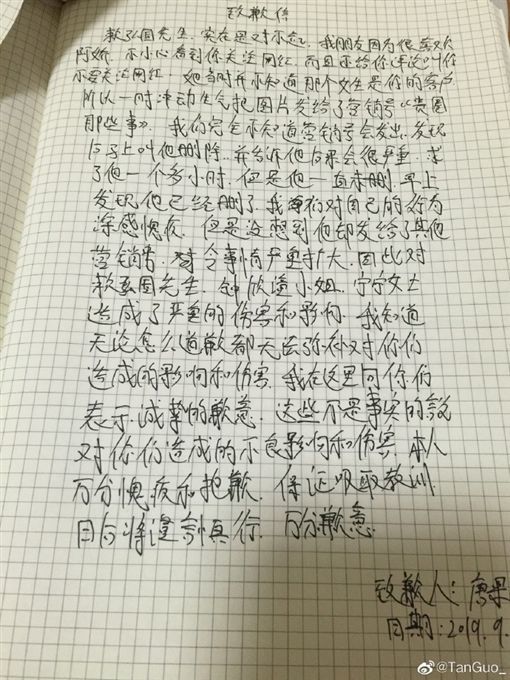 致歉信
款弘圆先生,实在是对不起,我朋友因为很喜欢
阿娇,不小心看到你关注网红,而且不给你评论叫你
不要关注网红,她当时并不知道那个女生是你的客户
所以一时冲动生气把图片发给了营销号“贵圈
那些事》,我们完全不知道营销号会发出,发现
后马上叫他删除,并告诉他后果会很严重,求
了他一个多小时,但是他一直未删,早上
发现他已经删了,我们对自己的行为
深感愧疚,但是没想到他却发给了其他
营销号,对令事情严重扩大,因此对
款弘圆先生,钟欣潼小姐,宁宁女士
造成了严重的伤害和影响,我知道
无论怎么道歉都无法弥补对你们
造成的影响和伤害,我在这里向你们
表示诚挚的歉意,这些不是事实的新
对你们造成的不良影响和伤害,本人
万分愧疚和抱歉,保证吸取教训,
日后将谨言慎行,万分歉意.
致歉人:唐果
日期:2019.9.
@TanGuo_